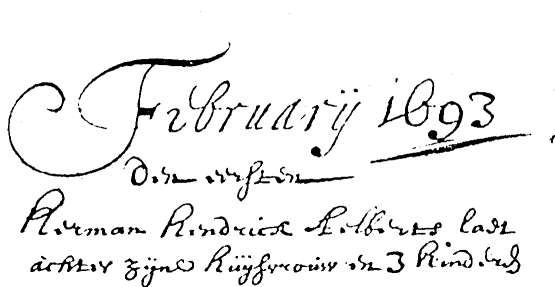 Februarij 1693
Den eersten
Herman Hendrick Aelberts laet
achter zijne huijsvrouw en 3 kinders